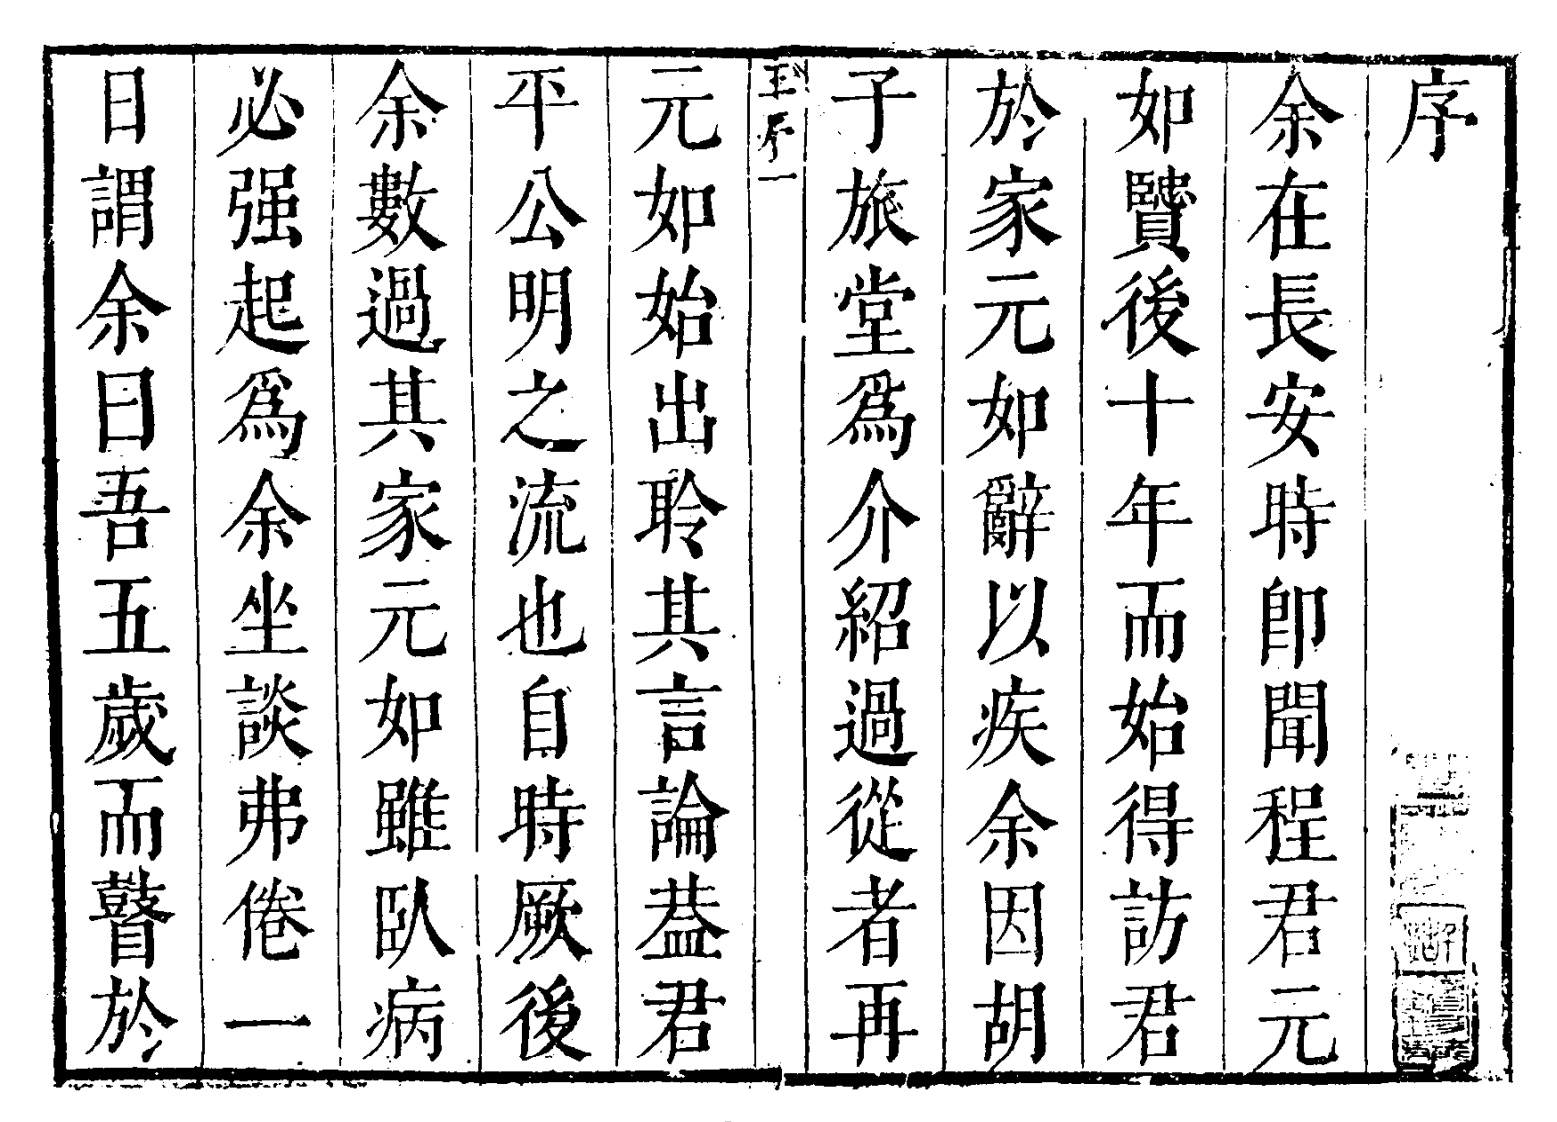 序
余在長安時卽聞程君元
如贒後十年而始得訪君
於家元如辭以疾余因胡
子旅堂爲介紹過從者再
王序 一
元如始出聆其言論葢君
平公明之流也自時厥後
余數過其家元如雖臥病
必强起爲余坐談弗倦一
日謂余曰吾五歲而瞽於